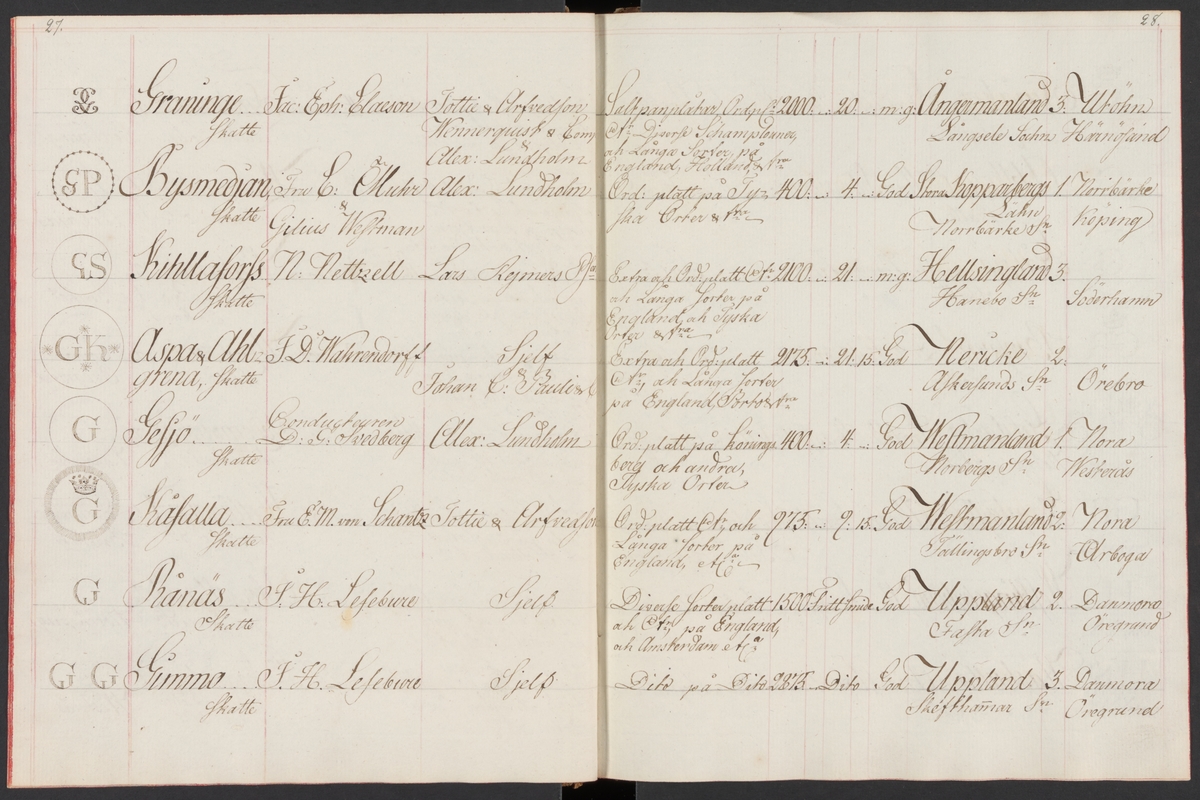 27.
28.
Graninge.... Fac: Eph: Claeson Tottie & Arfvedson 2000. 20. m:g: Ångermanland 3. Utöhn
Skatte Wennerquist & Comp Diverse Långsele Sochn Härnösand
Alex: Lundholm och Långa Sorter, på
England, Holland, & tra
GP Fru C: Alex: Lundholm Ord: platt på Ty= 400. 4. God Stora Kopparbergs 1. Norrbärke
Skatte & ska Orter & tra Lähn Köping
Gilius Westman Norrbärke Sn
GS Kihlaforss N: Nettzell Lars Rejmers Extra och Ord: platt 2100. 21. m:g: Hellsingland 3.
Skatte och Långa Sorter på Hanebo Sn Söderhamn
England, och Tyska
Orter & tra
GK Aspa & Ahl= F. D. Wahrendorff Sjelf Extra och Ord: platt 2175. 21. 15. God Nericke 2.
grena, Skatte Johan och Långa Sorter Askersunds Sn Örebro
på England, Porto & tra
G Gesjö....... Conducteuren
Svedberg Alex: Lundholm Ord: platt på Könings= 400. 4. God Westmanland 1. Nora
Skatte berg och andra, Norbergs Sn Westerås
Tyska Orter
G Kåfalla.... Fru E. M. von Schantz Tottie & Arfvedson Ord: platt och 975. 9. 15. God Westmanland 2. Nora
Skatte Långa Sorter på Fällingsbro Sn Arboga
England, etc
G Rånäs J. H. Lefebure Sjelf Diverse Sorter platt 1500 God Uppland 2. Danmora
Skatte och på England, Fasta Sn Öregrund
och Amsterdam etc
G G Gimmo.... J. H. Lefebure Sjelf Dito på Dito 2875. Dito God Uppland 3. Danmora
Skatte Skefthammar Sn Öregrund